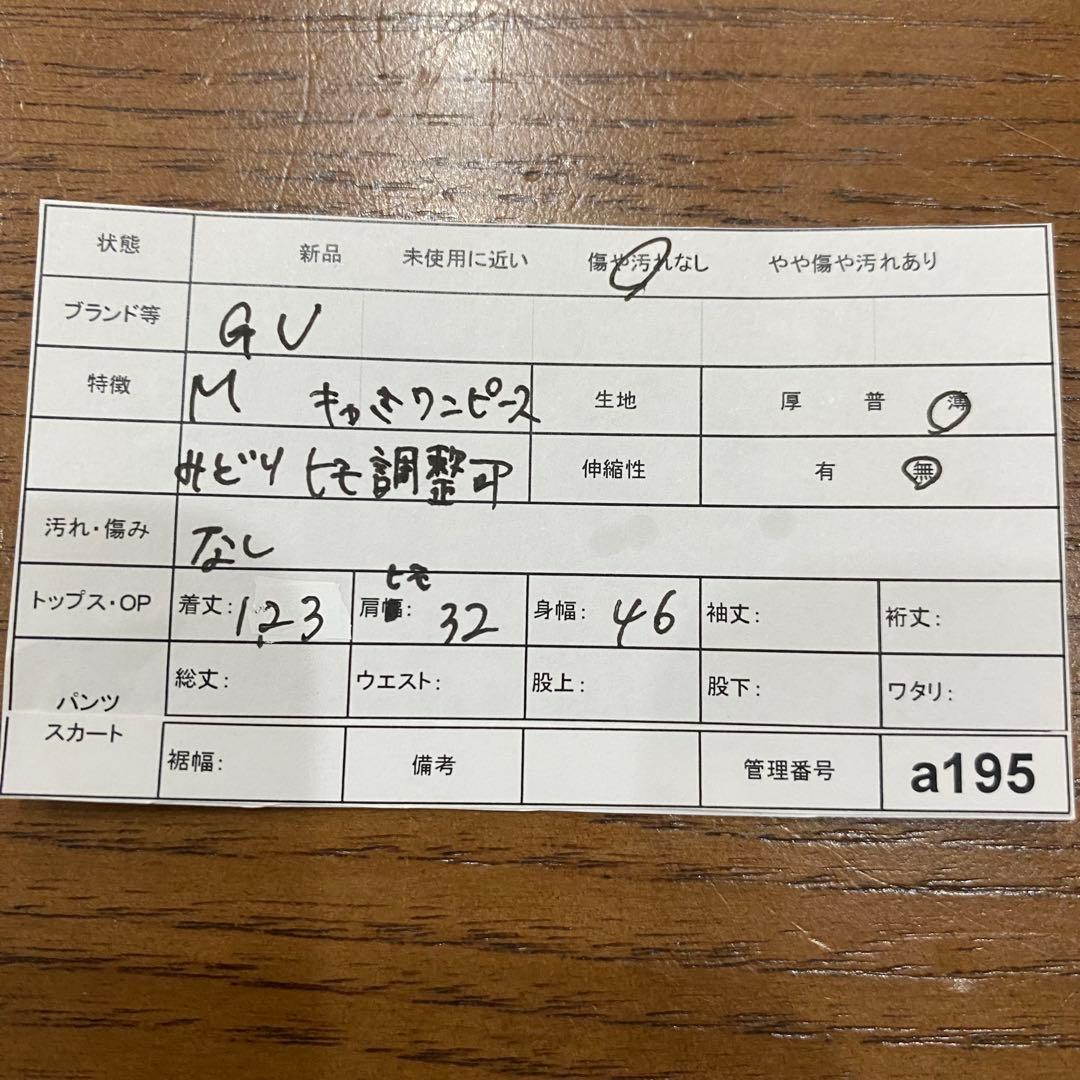 状態 新品 未使用に近い 傷や汚れなし やや傷や汚れあり
ブランド等 GU
特徴 M きゃみワンピース 生地 厚 普 薄
みどり ヒモ調整可 伸縮性 有 無
汚れ・傷み なし
ヒモ
トップス・OP 着丈: 123 肩幅: 32 身幅: 46 袖丈: 裄丈:
パンツ スカート 総丈: ウエスト: 股上: 股下: ワタリ:
裾幅: 備考 管理番号 a195